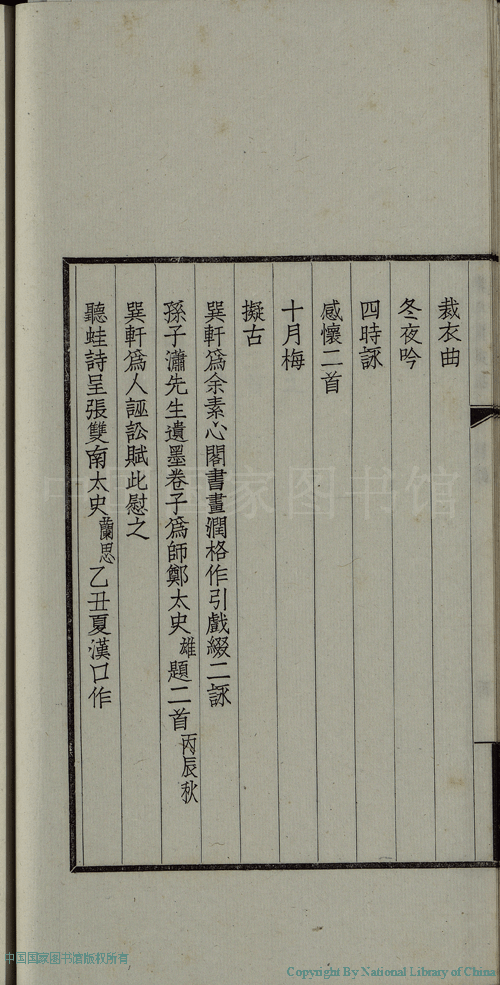 裁衣曲
冬夜吟
四時詠
感懷二首
十月梅
擬古
巽軒爲余素心閣書畫潤格作引戲綴二詠
孫子瀟先生遺墨卷子爲師鄭太史雄題二首丙辰秋
巽軒爲人誣訟賦此慰之
聽蛙詩呈張雙南太史蘭思乙丑夏漢口作
中国国家图书馆
中国国家图书馆版权所有
Copyright By National Library of China